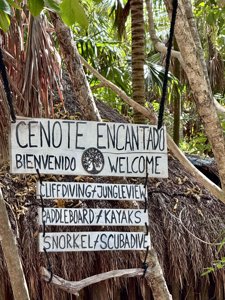 CENOTE ENCANTADO
BIENVENIDO WELCOME
CLIFFDIVING+JUNGLEVIEW
PADDLEBOARD/KAYAKS
SNORKEL/SCUBADIVE